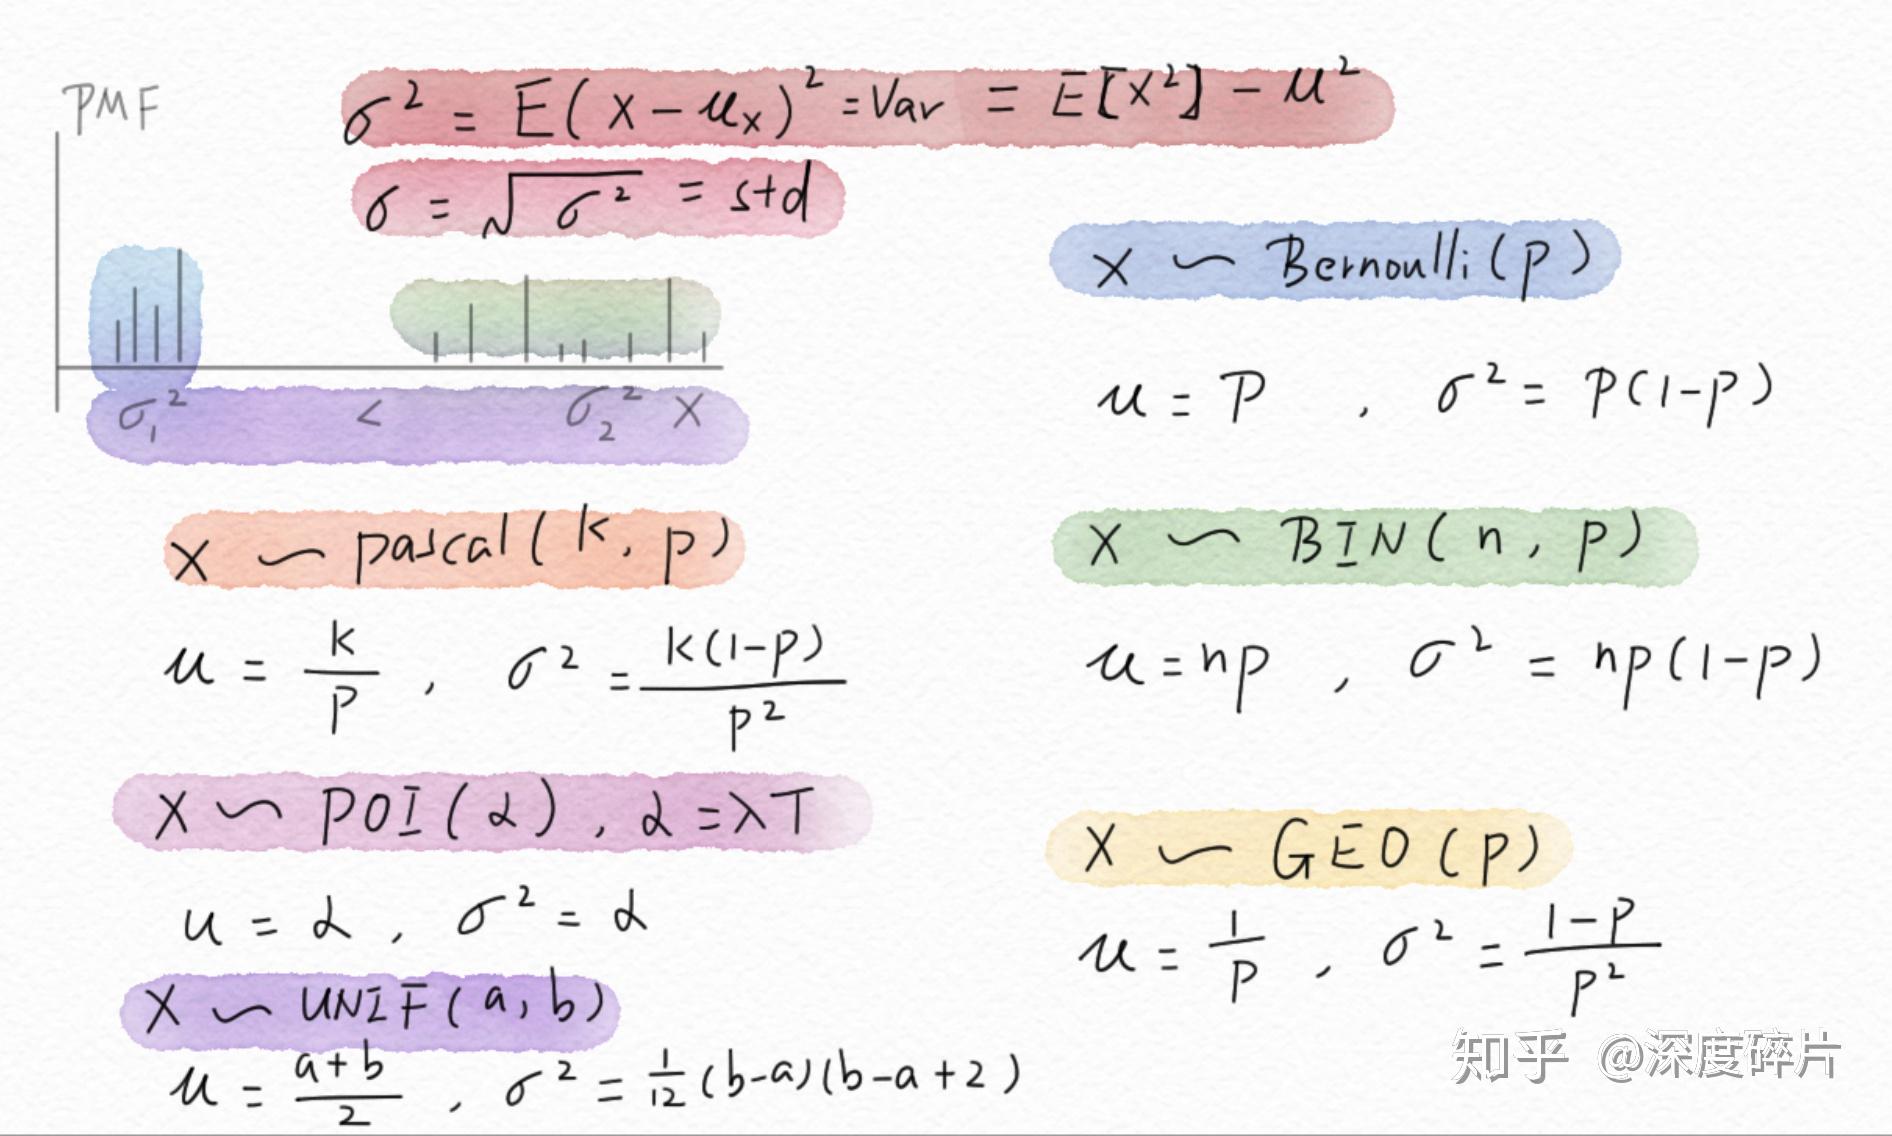 PMF
σ² = E(X - μₓ)² = Var = E[X²] - μ²
σ = √σ² = std
σ₁² < σ₂² X
X ~ Bernoulli(p)
μ = P , σ² = P(1-p)
X ~ pascal(k, p)
μ = k/P , σ² = k(1-p)/p²
X ~ BIN(n, p)
μ = np , σ² = np(1-p)
X ~ POI(α), α = λT
μ = α , σ² = α
X ~ GEO(p)
μ = 1/P , σ² = 1-P/P²
X ~ UNIF(a, b)
μ = a+b/2 , σ² = 1/12 (b-a)(b-a+2)
知乎 @深度碎片